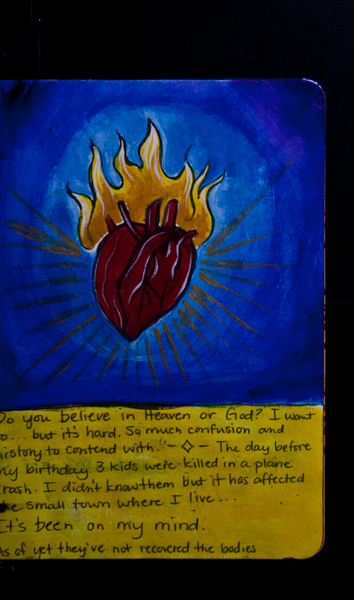 Do you believe in Heaven or God? I want
to... but it's hard. So much confusion and
history to contend with. — ✧ — The day before
my birthday 3 kids were killed in a plane
crash. I didn't know them but it has affected
the small town where I live...
It's been on my mind.
As of yet they've not recovered the bodies